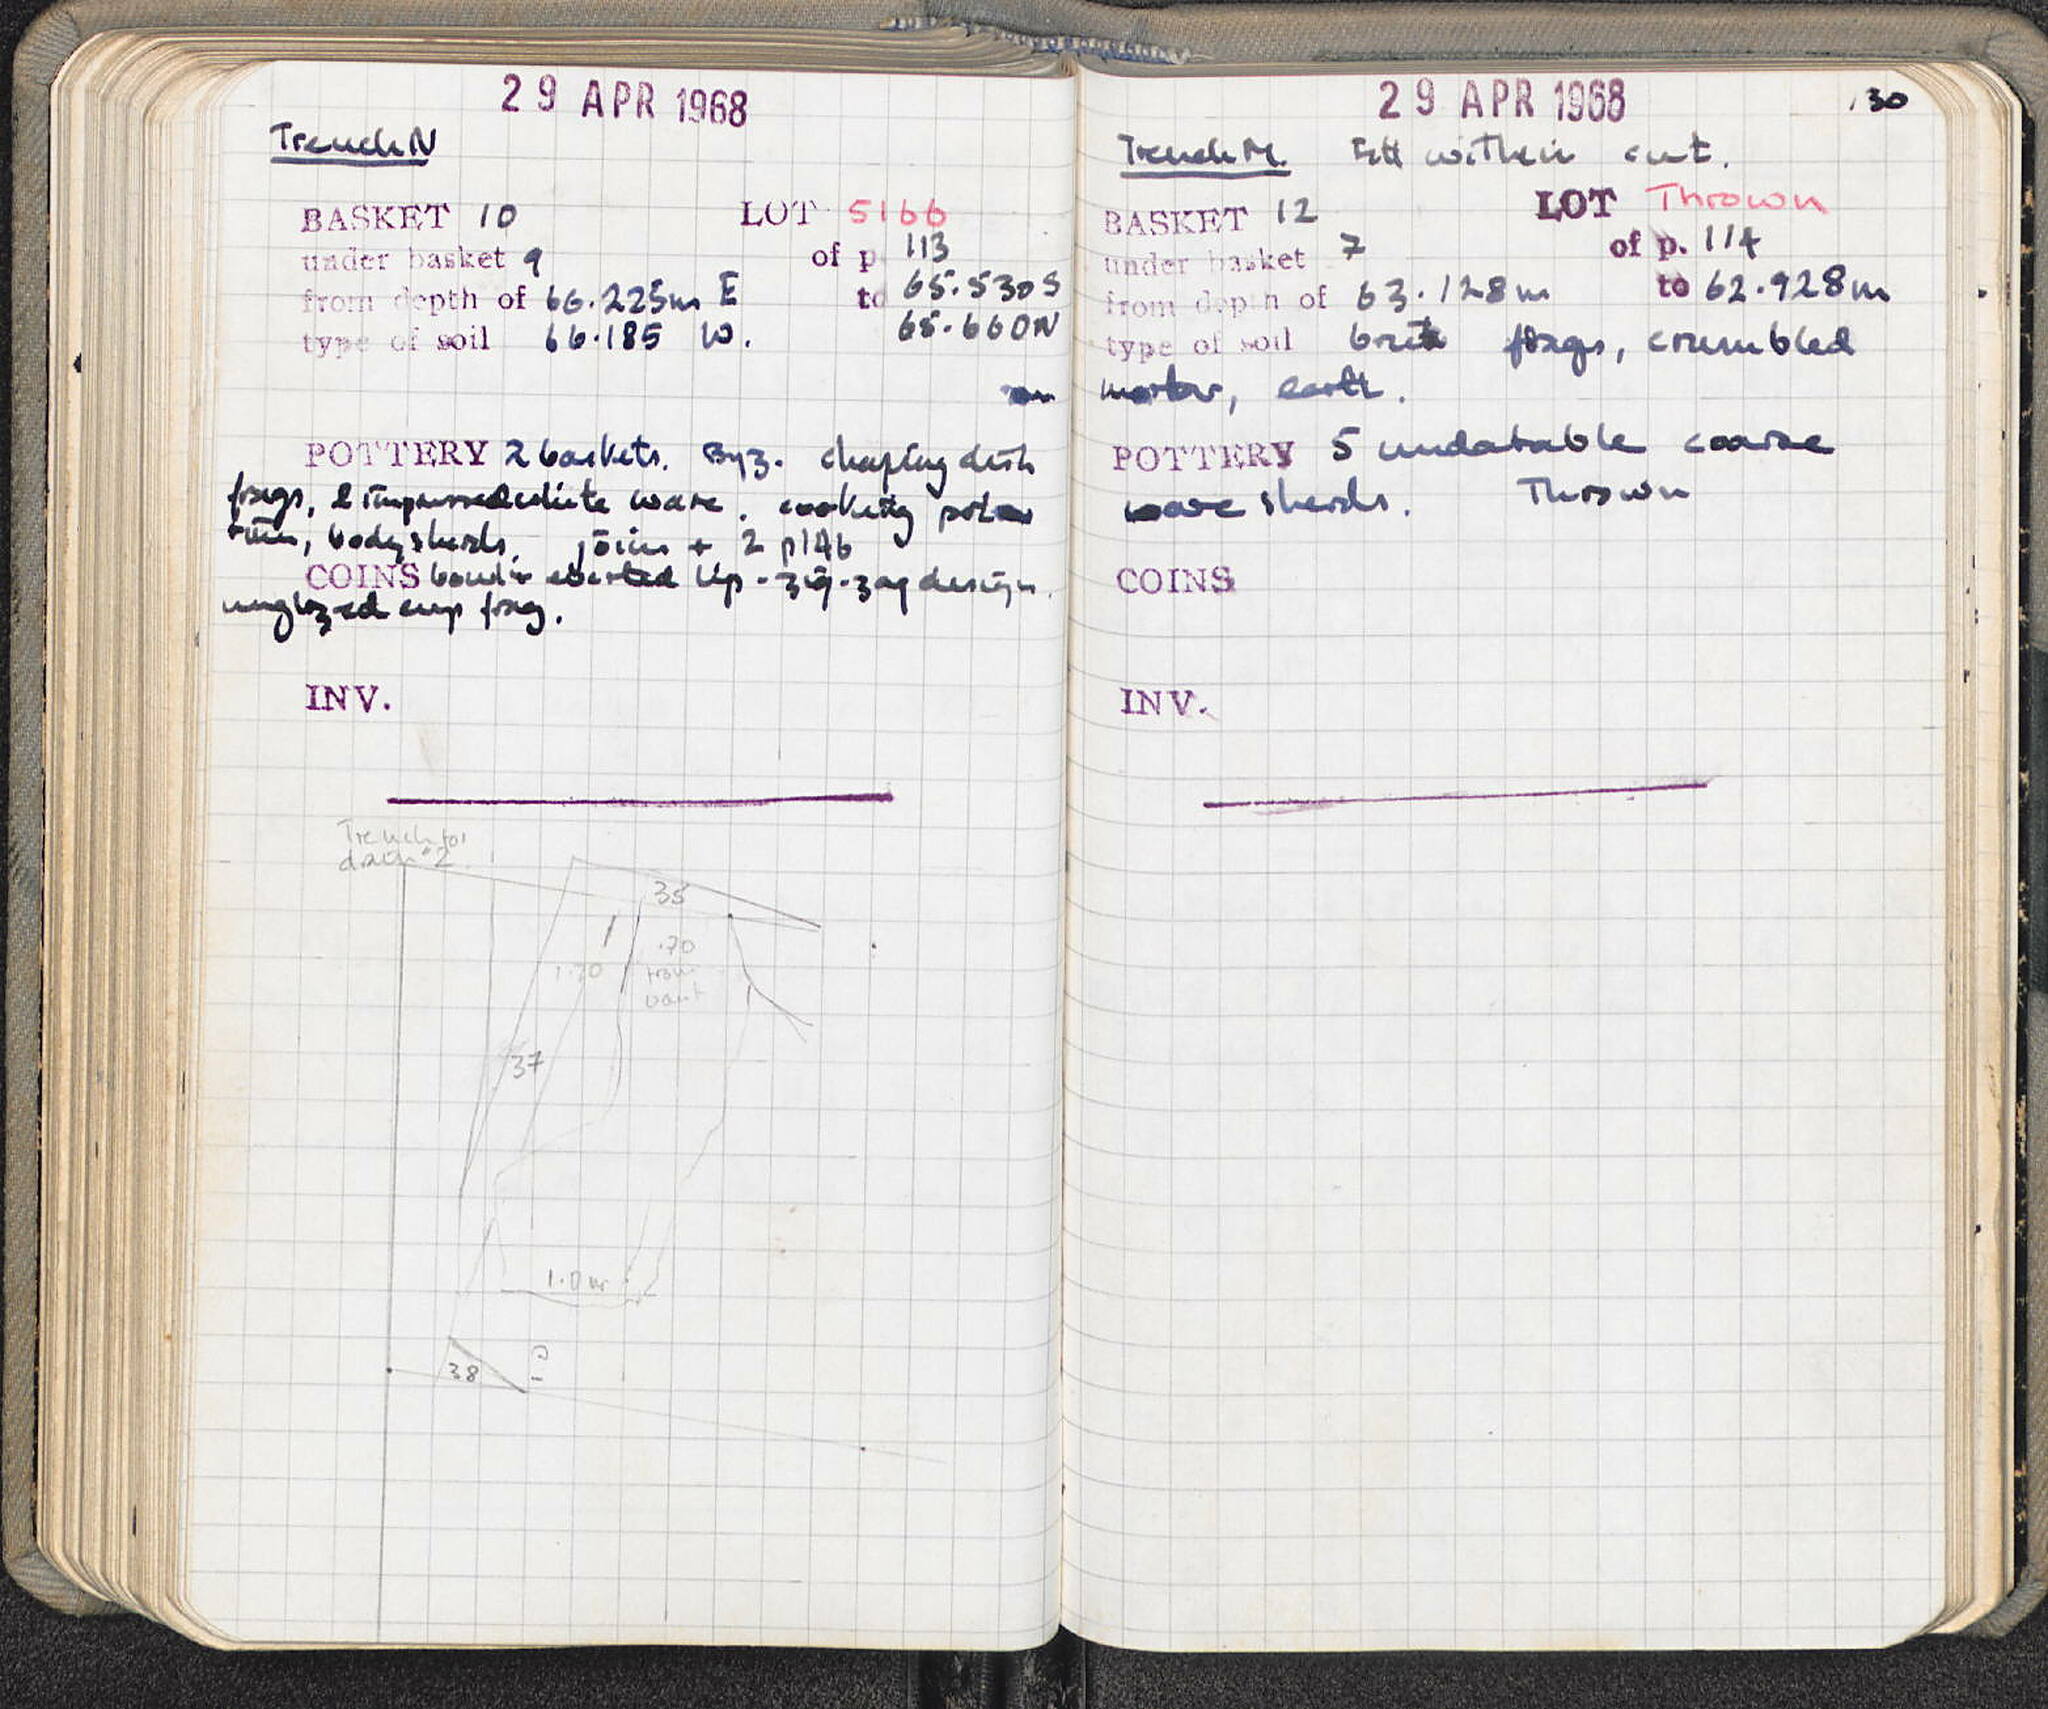 29 APR 1968
Trench N
BASKET 10 LOT 5166
under basket 9 of p 113
from depth of 66.225m E to 65.530 S
type of soil 66.185 W. 65.660N
POTTERY 2 baskets. Byz. chafing dish
frags, 2 impressed white ware. cooking pot
rim, body sherds. joins + 2 p146
COINS bowl everted lip - zig-zag design.
unglazed cup frag.
INV.
Trench for
drain #2
35
.70
1.20 from
vault
37
1.0m
38
29 APR 1968
130
Trench M. Fill within cut.
BASKET 12 LOT Thrown
under basket 7 of p. 114
from depth of 63.128m to 62.928m
type of soil brick frags, crumbled
mortar, earth.
POTTERY 5 undatable coarse
ware sherds. Thrown
COINS
INV.